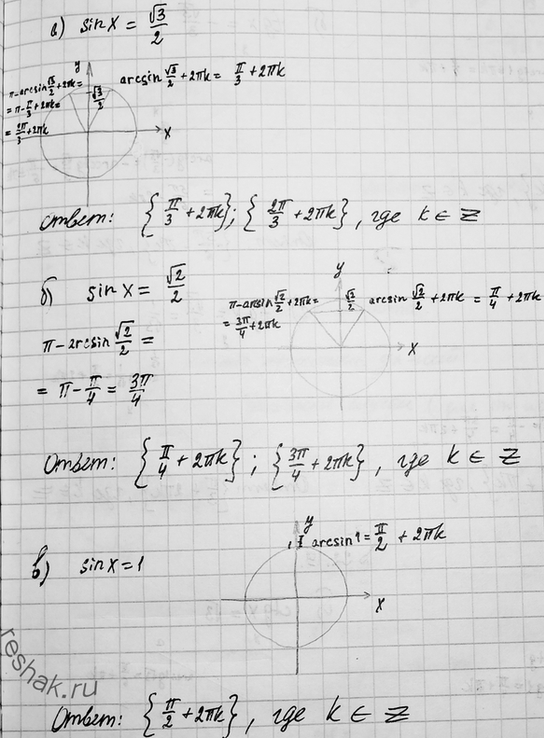 а) sin x = √3/2
y
π-arcsin √3/2 + 2πk =
= π - π/3 + 2πk =
= 2π/3 + 2πk
√3/2
arcsin √3/2 + 2πk = π/3 + 2πk
x
ответ: {π/3 + 2πk}; {2π/3 + 2πk}, где k ∈ Z
б) sin x = √2/2
y
π-arcsin √2/2 + 2πk =
= 3π/4 + 2πk
√2/2
arcsin √2/2 + 2πk = π/4 + 2πk
x
π - arcsin √2/2 =
= π - π/4 = 3π/4
Ответ: {π/4 + 2πk}; {3π/4 + 2πk}, где k ∈ Z
в) sin x = 1
y
arcsin 1 = π/2 + 2πk
x
reshak.ru
Ответ: {π/2 + 2πk}, где k ∈ Z